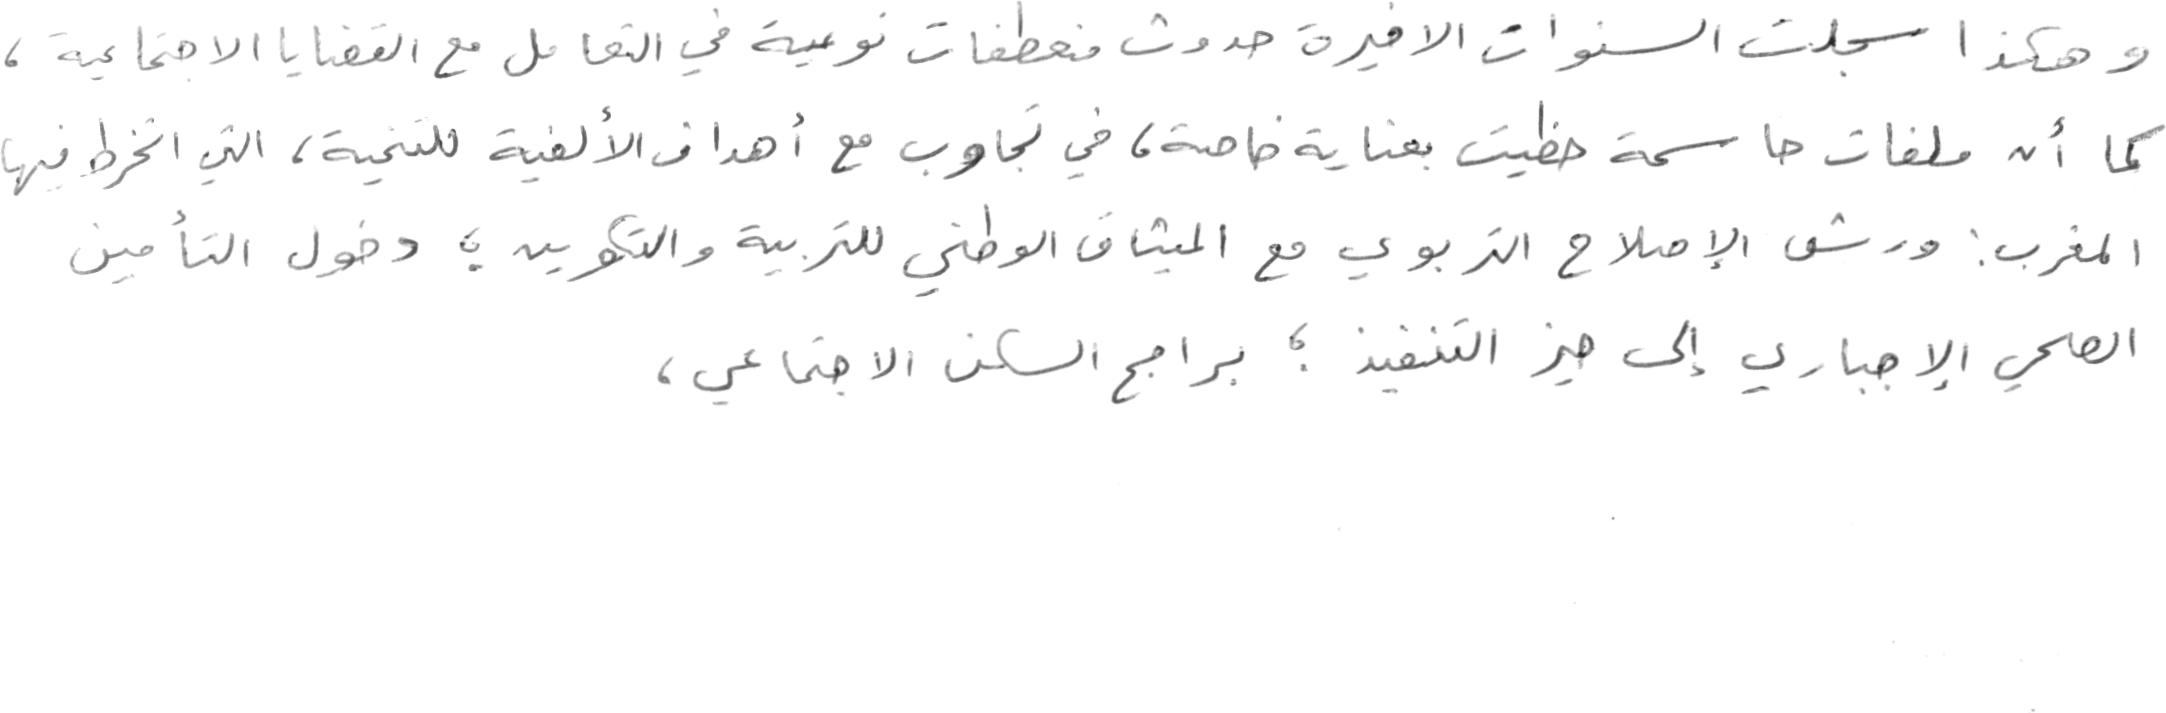 وهكذا سجلت السنوات الاخيرة حدوث منعطفات نوعية في التعامل مع القضايا الاجتماعية،
كما أن ملفات حاسمة حظيت بعناية خاصة، في تجاوب مع أهداف الألفية للتنمية، التي انخرط فيها
المغرب: ورش الإصلاح التربوي مع الميثاق الوطني للتربية والتكوين؛ دخول التأمين
الصحي الإجباري إلى حيز التنفيذ؛ برامج السكن الاجتماعي،